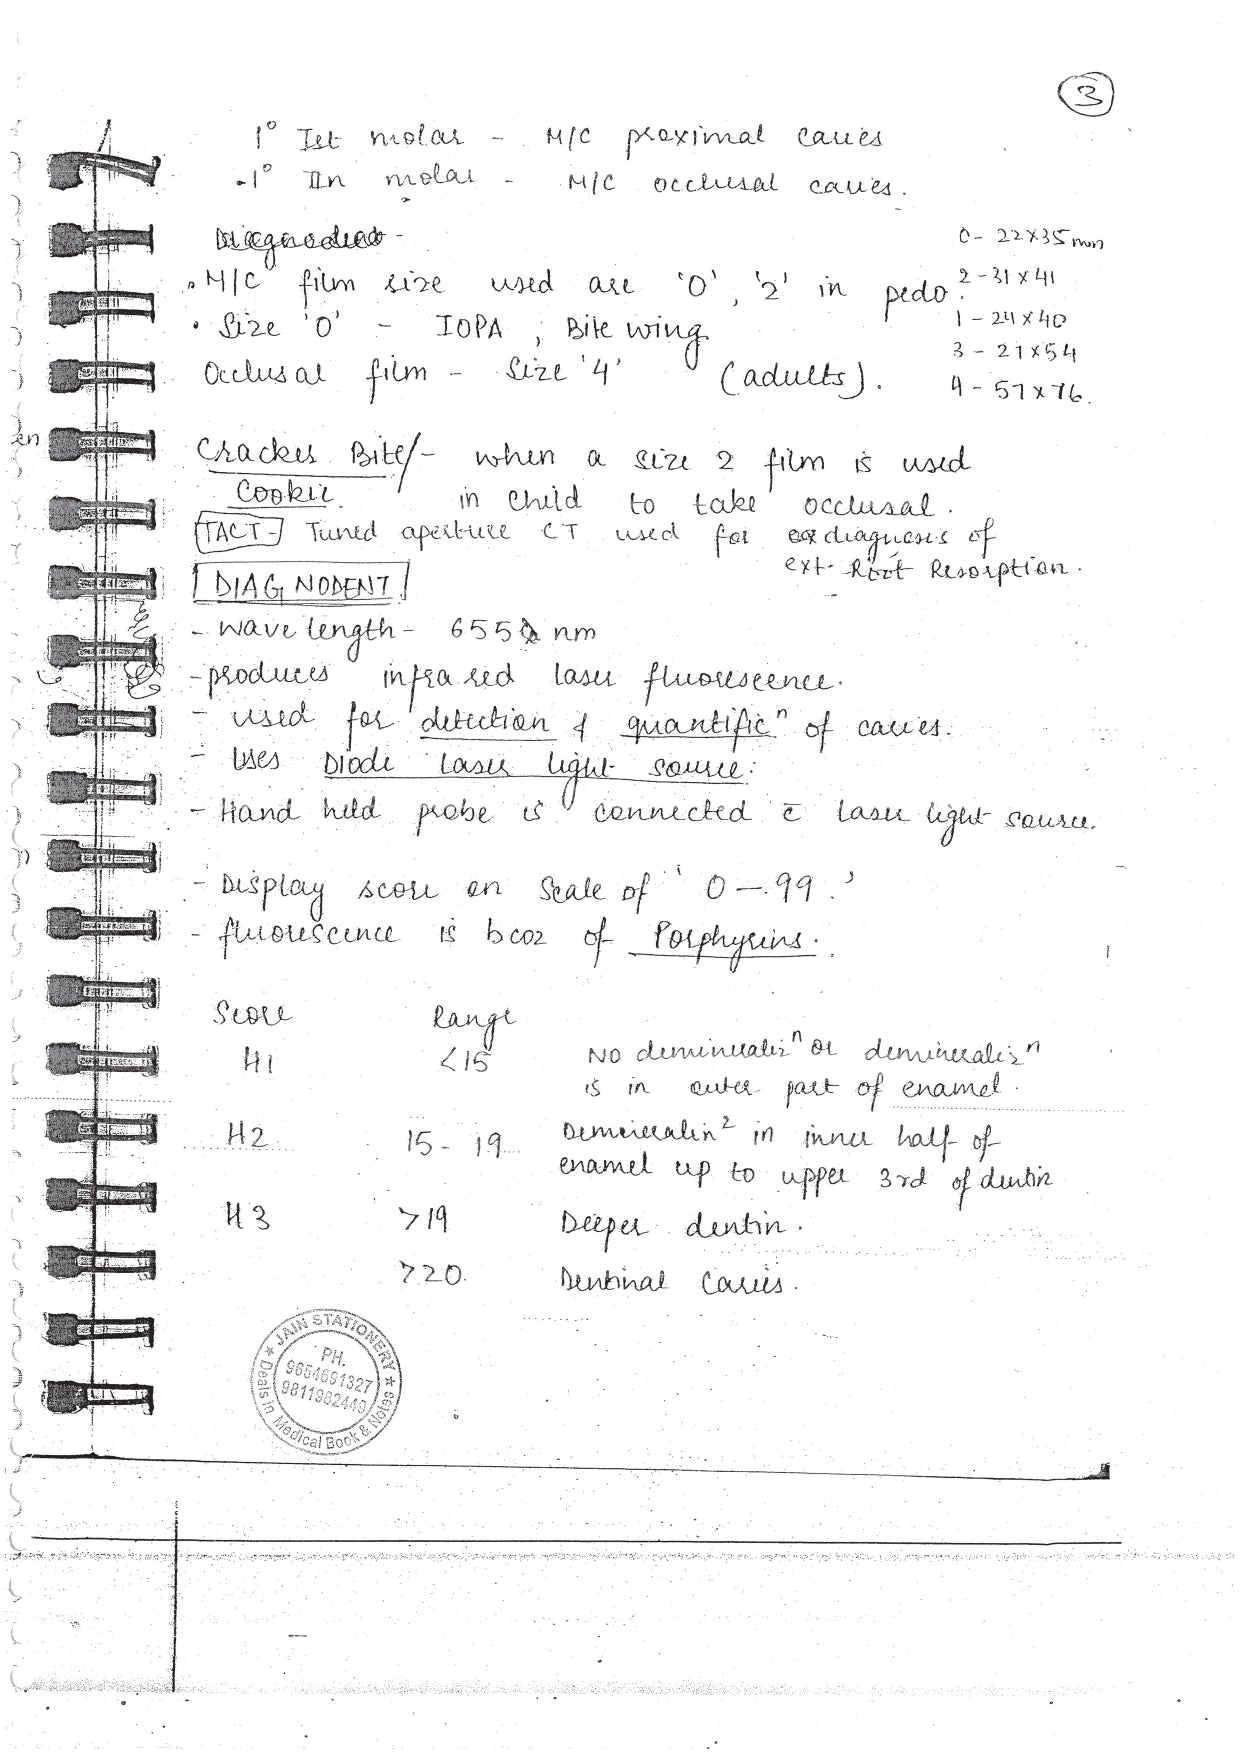 3
1° Ist molar - M/C proximal caries
1° IIn molar - M/C occlusal caries.
Diagnodent -
0 - 22x35 mm
• M/C film size used are '0', '2' in pedo.
2 - 31 x 41
1 - 24 x 40
• Size '0' - IOPA, Bite wing
3 - 27 x 54
Occlusal film - Size '4' (adults).
4 - 57 x 76.
en
Cracker Bite/- when a size 2 film is used
Cookie in child to take occlusal.
TACT - Tuned aperture CT used for diagnosis of
ext. Root Resorption.
DIAGNODENT
- Wave length - 655 nm
- produces infra red laser fluorescence.
- used for detection & quantificⁿ of caries.
- Uses Diode laser light source:
- Hand held probe is connected c̄ laser light source.
- Display score on Scale of '0 - 99.'
- fluorescence is bcoz of Porphyrins.
Score Range
H1 <15 NO demineralizⁿ or demineralizⁿ
is in outer part of enamel.
H2 15 - 19 Demineralin² in inner half of
enamel up to upper 3rd of dentin
H3 >19 Deeper dentin.
>20. Dentinal Caries.
★ JAIN STATIONERY ★
PH.
9654691327
9811982449
Deals in Medical Book & Notes